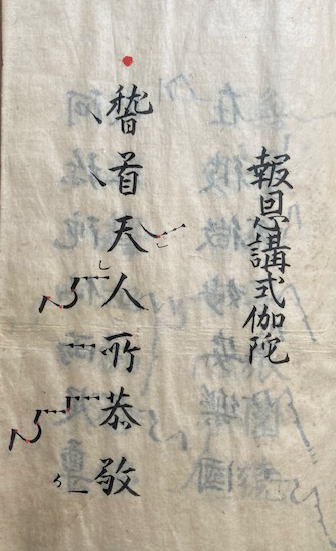 報恩講式伽陀
稽首天人所恭敬